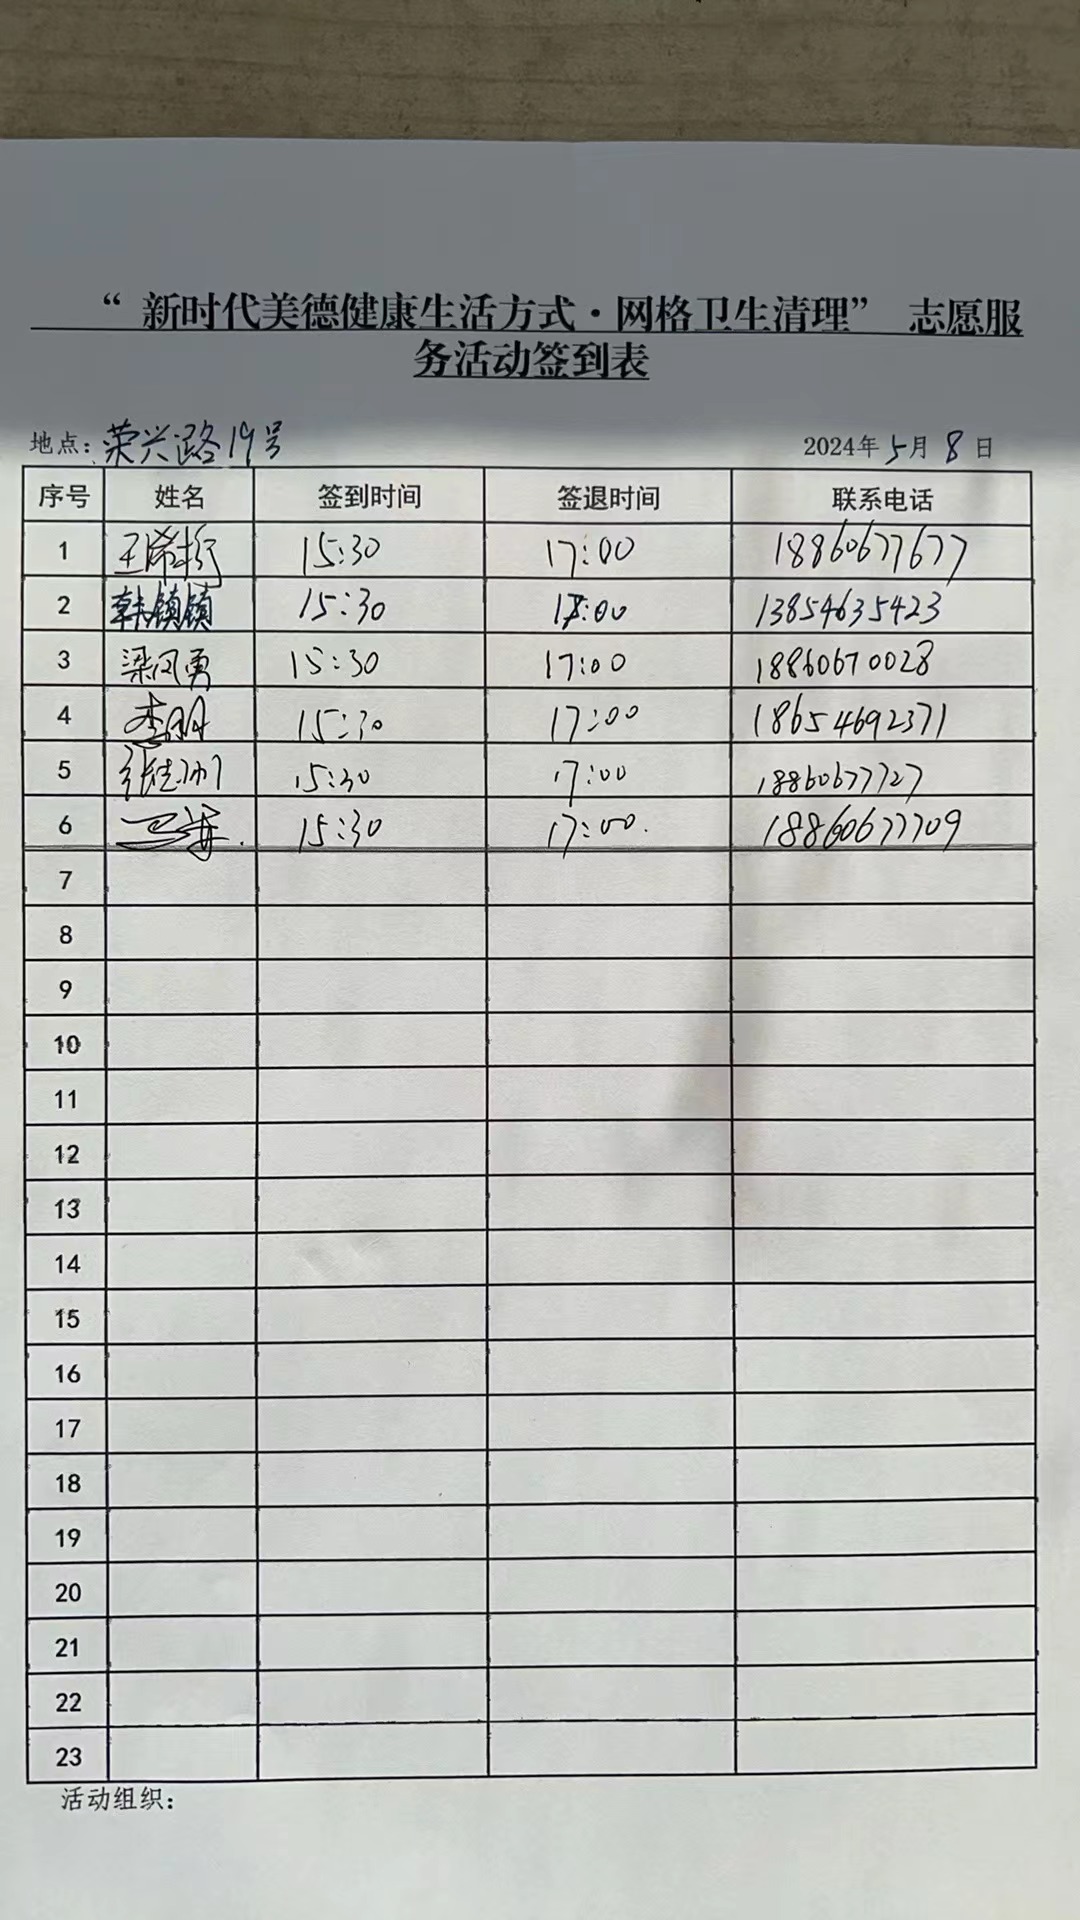 “ 新时代美德健康生活方式·网格卫生清理” 志愿服
务活动签到表
地点：荣兴路19号 2024年5月8日
序号 姓名 签到时间 签退时间 联系电话
1 15:30 17:00 18860677677
2 韩镇镇 15:30 17:00 13854635423
3 梁风勇 15:30 17:00 18860670028
4 李明 15:30 17:00 18654692371
5 15:30 17:00 18860677727
6 15:30 17:00. 18860677709
7
8
9
10
11
12
13
14
15
16
17
18
19
20
21
22
23
活动组织：